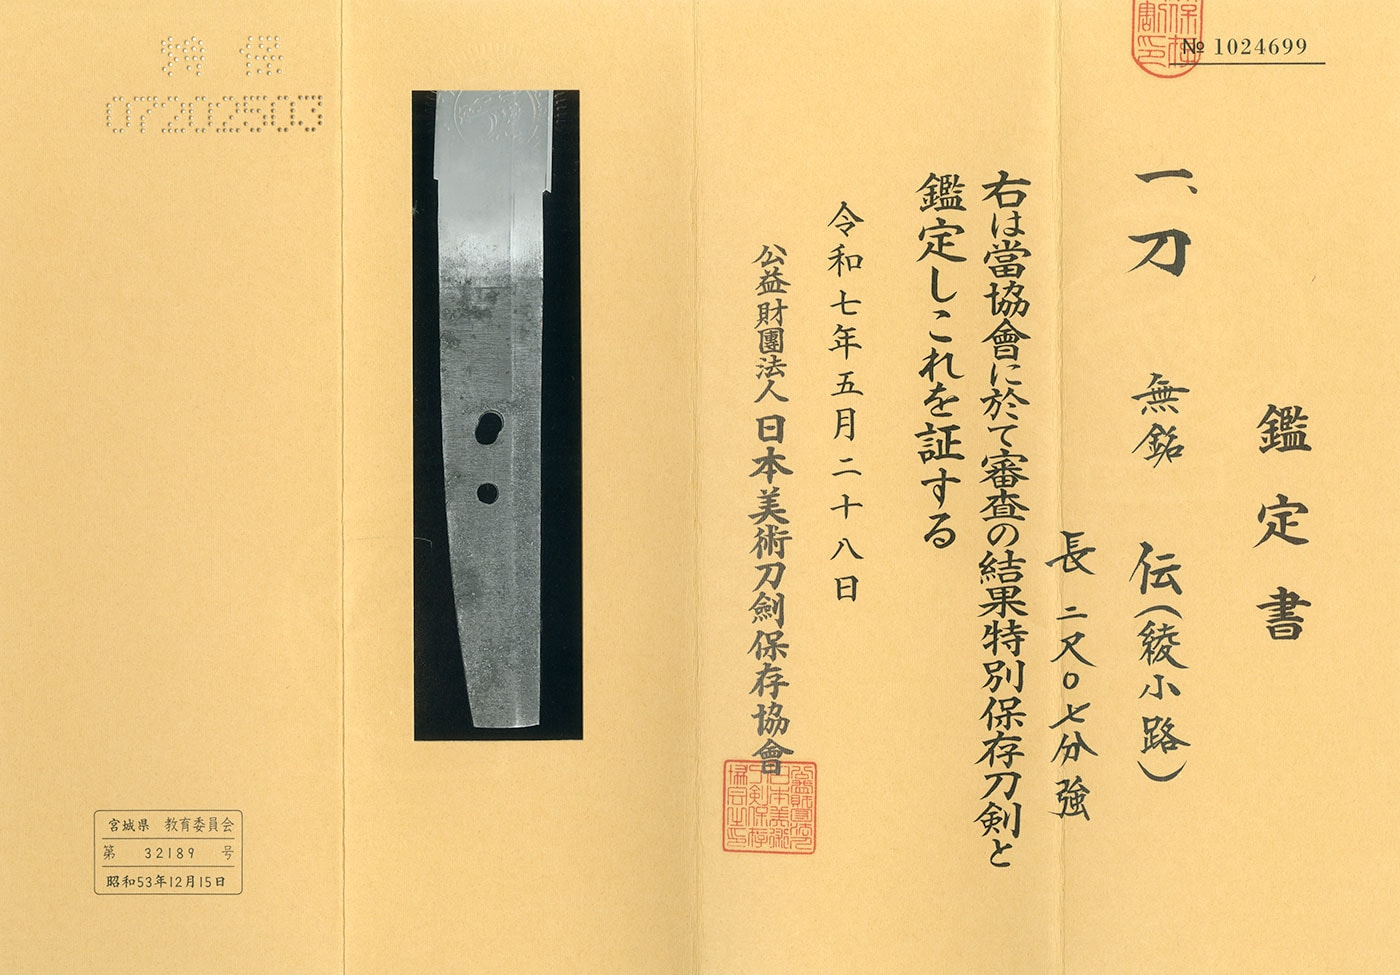 № 1024699
鑑定書
一、刀 無銘 伝(綾小路)
長 二尺0七分強
右は當協會に於て審査の結果特別保存刀剣と
鑑定しこれを証する
令和七年五月二十八日
公益財團法人 日本美術刀劍保存協會
特保
07202503
宮城県 教育委員会
第 32189 号
昭和53年12月15日